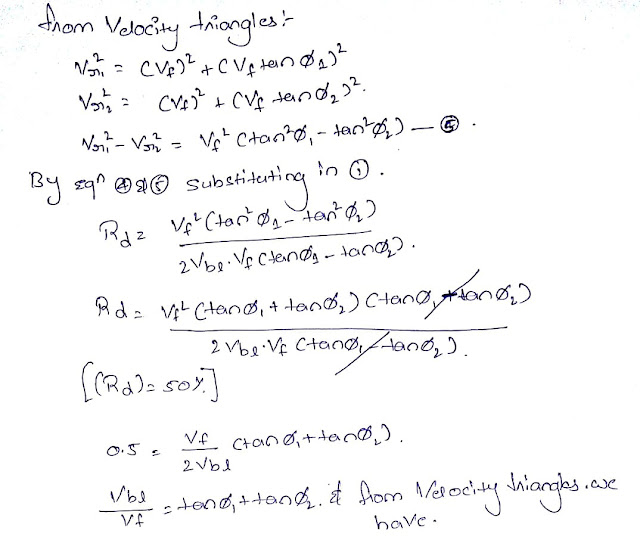 from Velocity triangles:-
Vr₁² = (Vf)² + (Vf tan Ø₁)²
Vr₂² = (Vf)² + (Vf tan Ø₂)².
Vr₁² - Vr₂² = Vf² (tan²Ø₁ - tan²Ø₂) — ⑤.
By eqn ④ & ⑤ substituting in ①.
Rd = Vf² (tan² Ø₁ - tan² Ø₂)
2Vbl. Vf (tanØ₁ - tanØ₂).
Rd = Vf² (tanØ₁ + tanØ₂) (tanØ₁ + tanØ₂)
2 Vbl. Vf (tanØ₁ - tanØ₂).
[(Rd) = 50%]
0.5 = Vf (tan Ø₁ + tanØ₂).
2Vbl
Vbl = tanØ₁ + tanØ₂. & from Velocity triangles. we
Vf have.